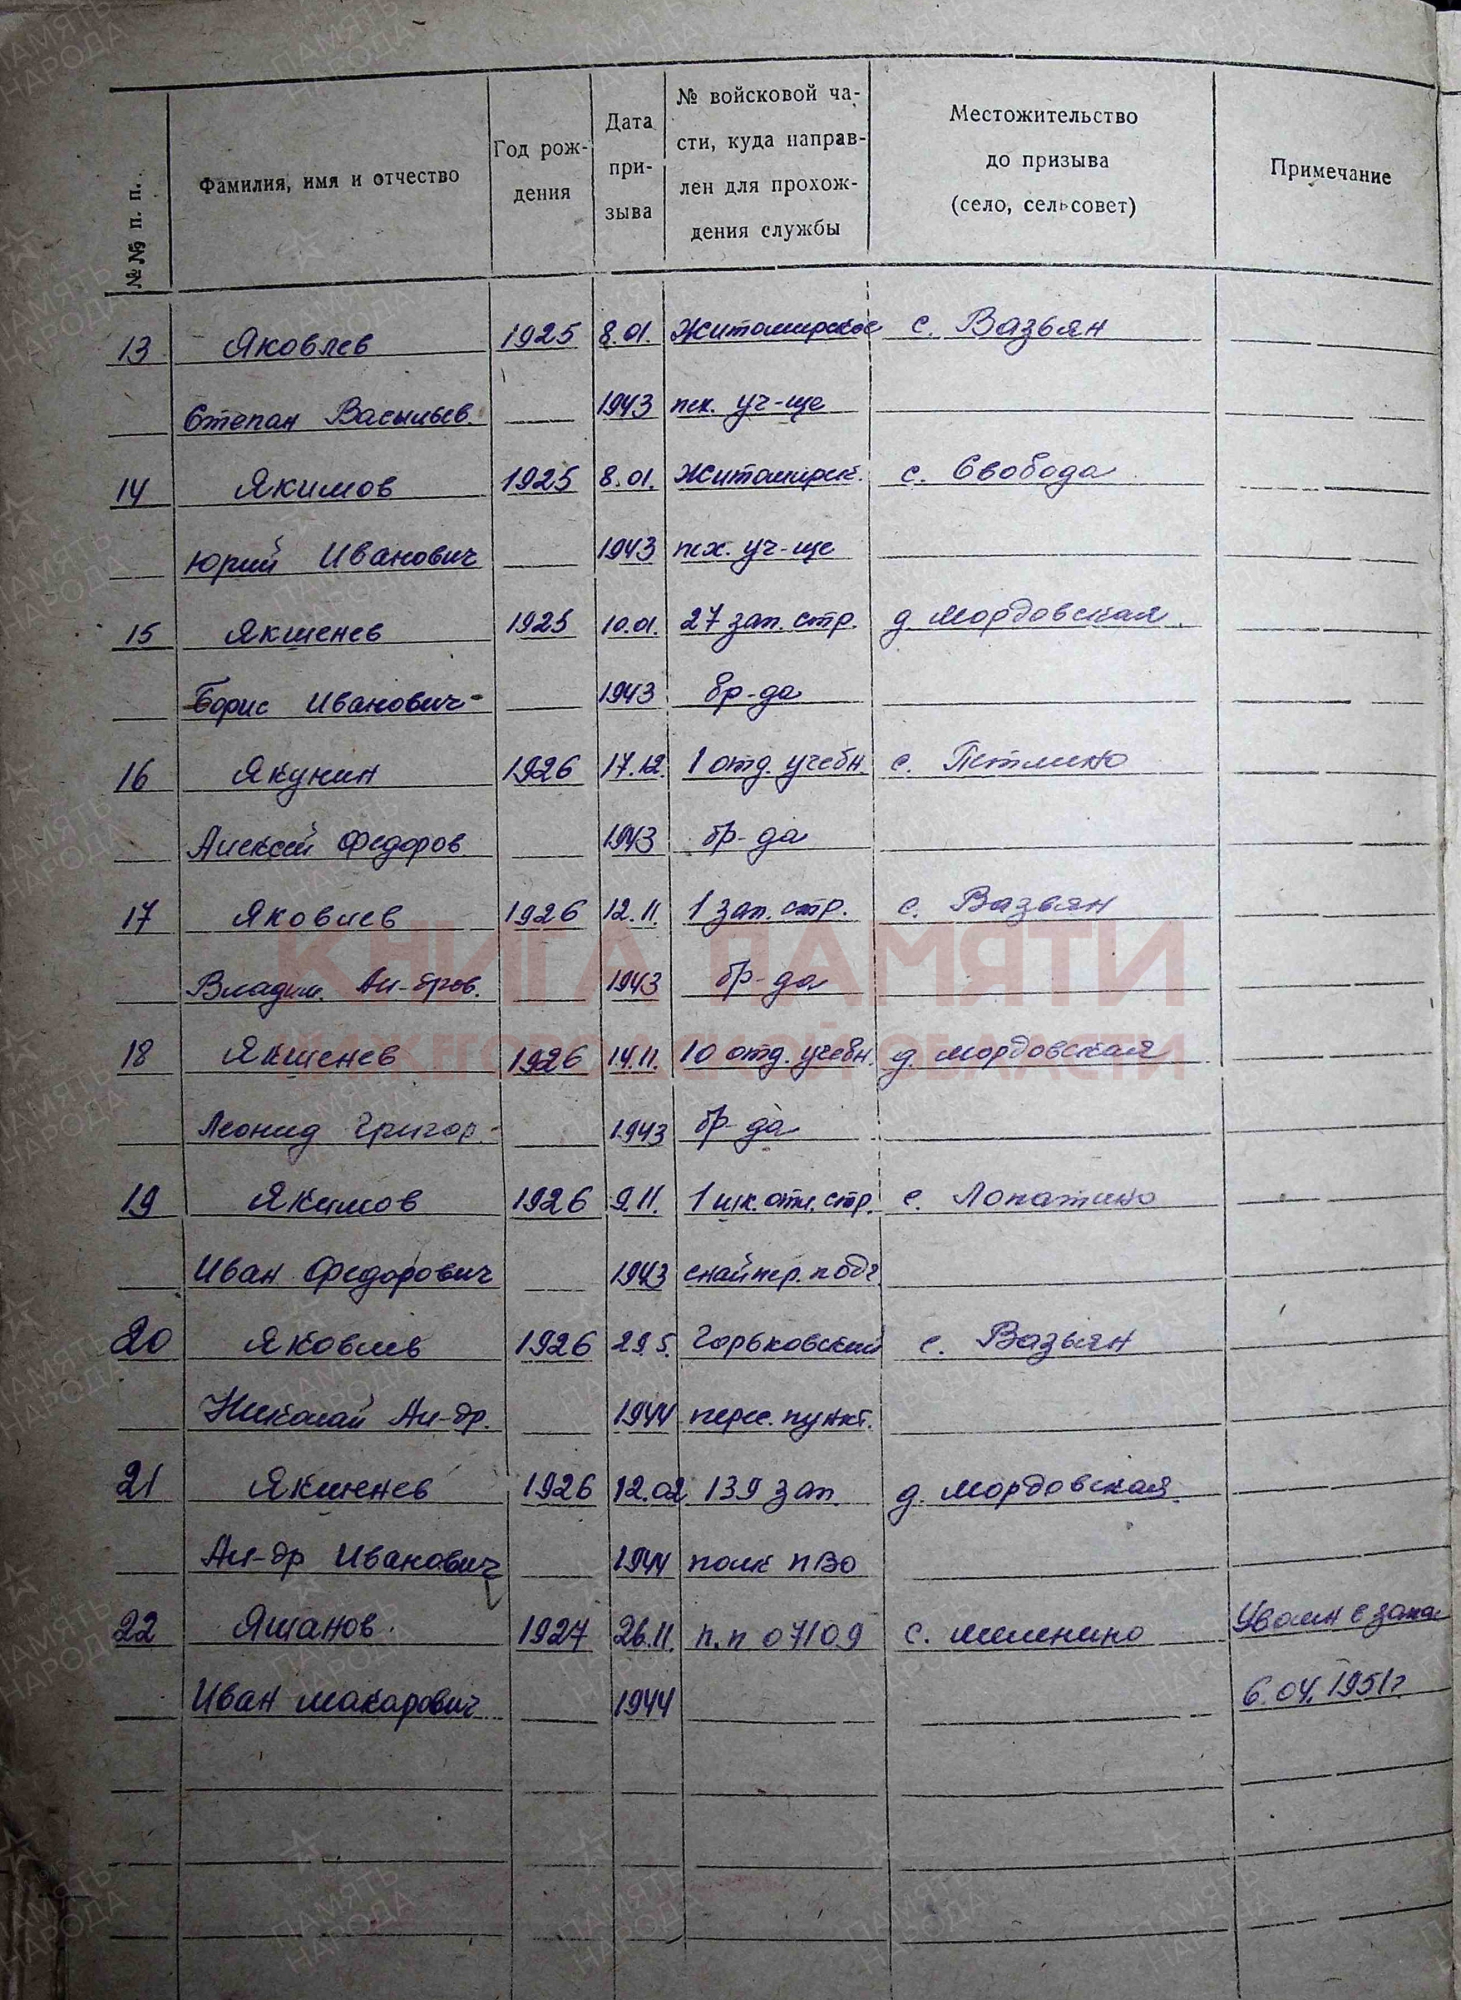 №№ п. п.
Фамилия, имя и отчество
Год рож-
дения
Дата
при-
зыва
№ войсковой ча-
сти, куда направ-
лен для прохож-
дения службы
Местожительство
до призыва
(село, сельсовет)
Примечание
13 Яковлев 1925 8.01. Житомирское с. Вазьян
Степан Васильев. 1943 пех. уч-ще
14 Якимов 1925 8.01. Житомирск. с. Свобода
Юрий Иванович 1943 пех. уч-ще
15 Якшенев 1925 10.01. 27 зап. стр. д. Мордовская
Борис Иванович 1943 бр-да
16 Якунин 1926 17.12. 1 отд. учебн. с. Петлино
Алексей Федоров. 1943 бр-да
17 Яковлев 1926 12.11. 1 зап. стр. с. Вазьян
Владим. Ал-дров. 1943 бр-да
18 Якшенев 1926 14.11. 10 отд. учебн. д. Мордовская
Леонид Григор. 1943 бр-да
19 Якимов 1926 9.11. 1 шк. отл. стр. с. Лопатино
Иван Федорович 1943 снайпер. подг.
20 Яковлев 1926 29.5. Горьковский с. Вазьян
Николай Ал-др. 1944 перес. пункт.
21 Якшенев 1926 12.02 139 зап. д. Мордовская
Ал-др Иванович 1944 полк ПВО
22 Яшанов 1927 26.11. п.п 07109 с. Шменино Уволен в запас
Иван Макарович 1944 6.04.1951г
КНИГА ПАМЯТИ
НИЖЕГОРОДСКОЙ ОБЛАСТИ
ПАМЯТЬ
НАРОДА